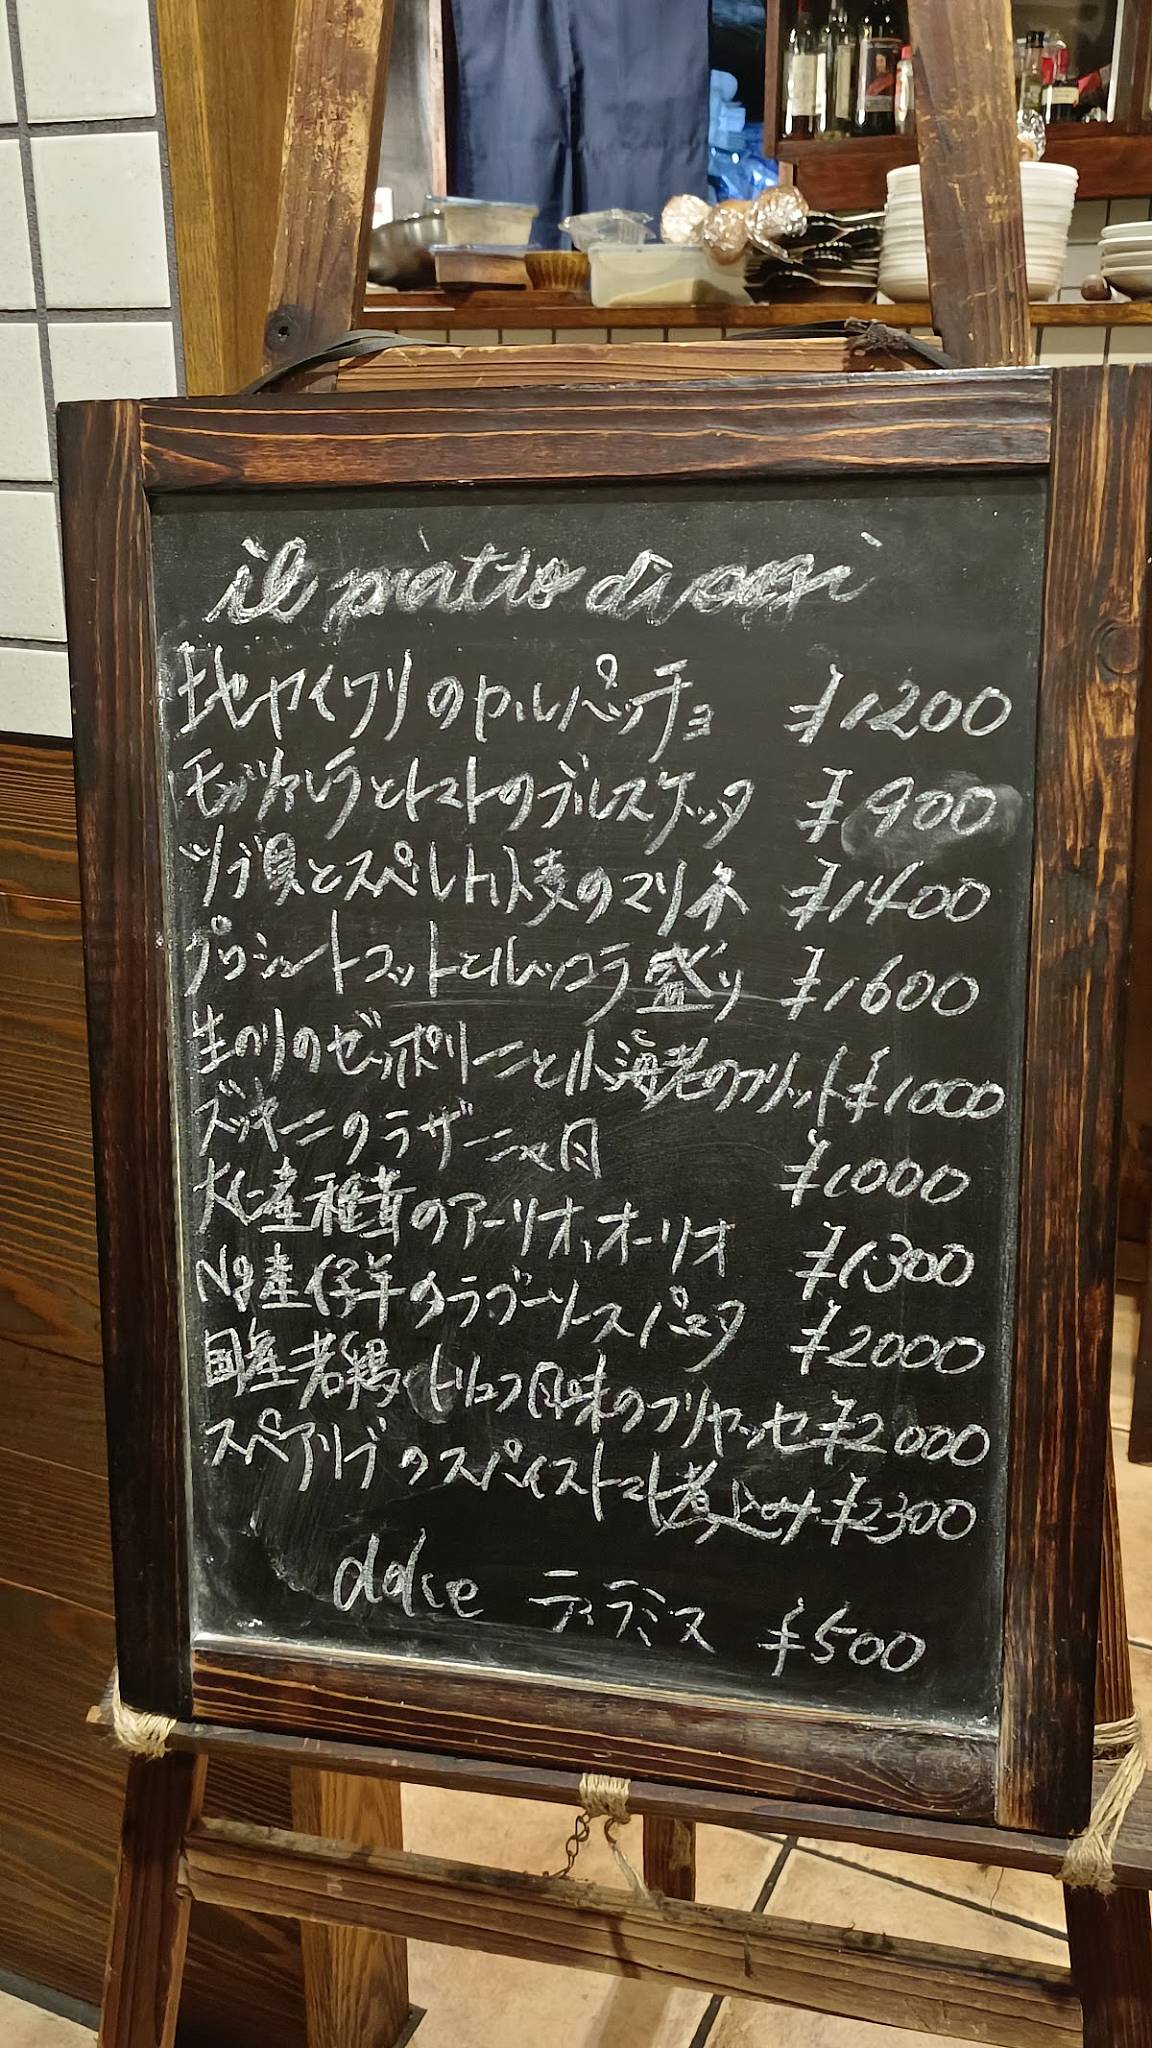 il piatto di oggi
地ヤイワリのカルパッチョ ¥1200
モッツァレラとトマトのブルスケッタ ¥900
ツブ貝とスペルト小麦のマリネ ¥1400
プロシュートコットとルッコラ盛り ¥1600
生のりのゼッポリーニと小海老のフリット ¥1000
ズッキーニのラザーニャ風 ¥1000
大仁産椎茸のアーリオ、オーリオ ¥1300
NZ産仔羊のラグーソースパスタ ¥2000
国産若鶏トリュフ風味のフリカッセ ¥2000
スペアリブのスパイストマト煮込み ¥2300
dolce ティラミス ¥500